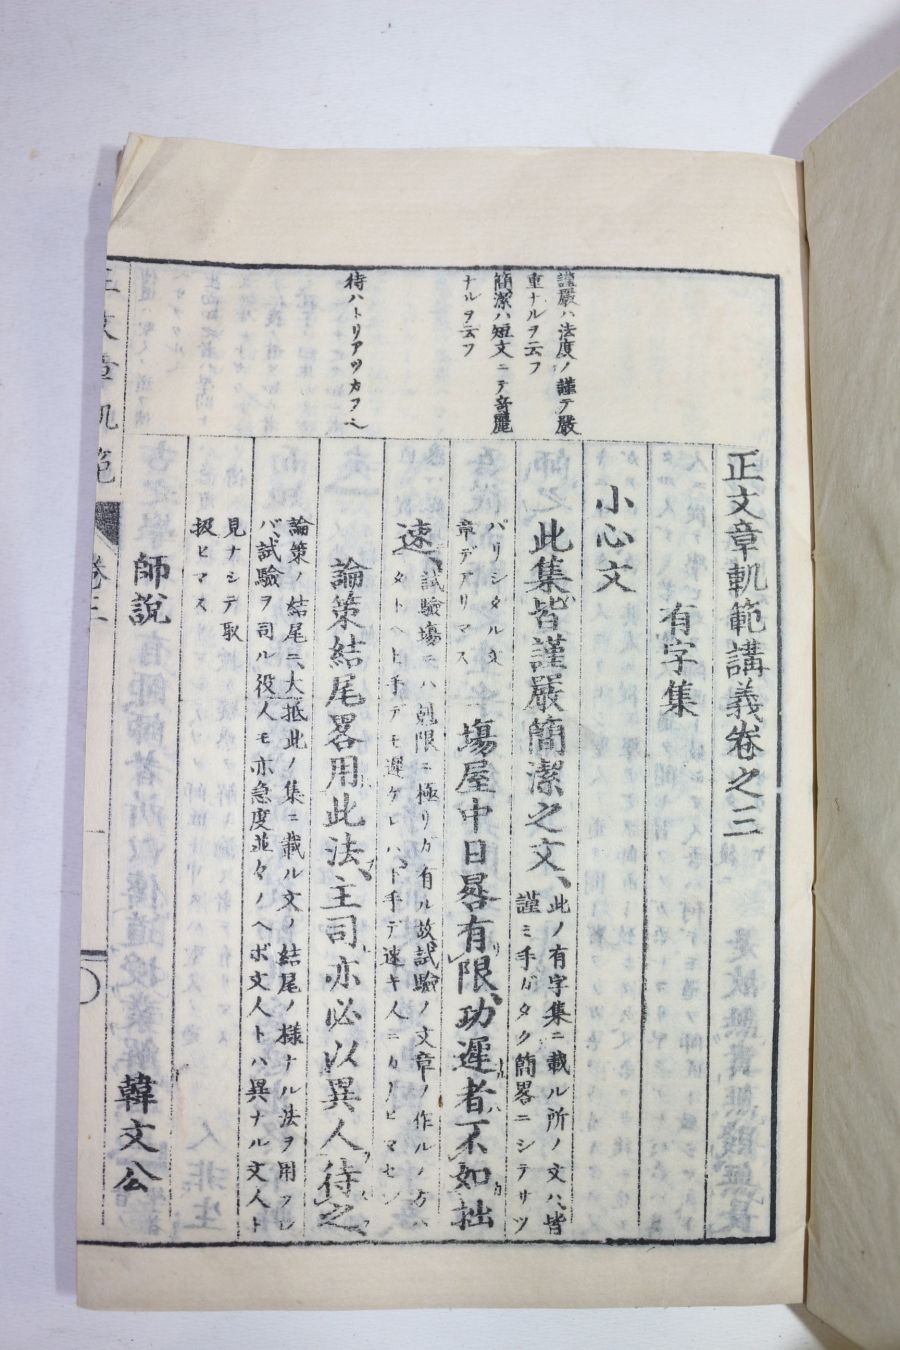 正文章軌範講義卷之三
有字集
小心文
此集皆謹嚴簡潔之文、
此ノ有字集ニ載ル所ノ文ハ、皆
謹ミ手ガタク簡畧ニシテサツ
パリシタル文
章デアリマス
場屋中日晷有限、功遲者不如拙
速、
試驗場ニハ刻限ニ極リガ有ル故、試驗ノ文章ノ作ルノ方ハ
タトヘ上手デモ遲ケレバ、下手デ速キ人ニカナヒマセン
論策結尾畧用此法、主司亦必以異人待之、
論策ノ結尾ニ、大抵此ノ集ニ載ル文ノ結尾ノ樣ナル法ヲ用フレ
バ、試驗ヲ司ル役人モ亦急度並々ノヘボ文人トハ異ナル文人ト
見ナシテ取
扱ヒマス
師說
韓文公
謹嚴ハ法度ノ謹テ嚴
重ナルヲ云フ
簡潔ハ短文ニテ奇麗
ナルヲ云フ
待ハトリアツカフヘ
正文章軌範
卷三